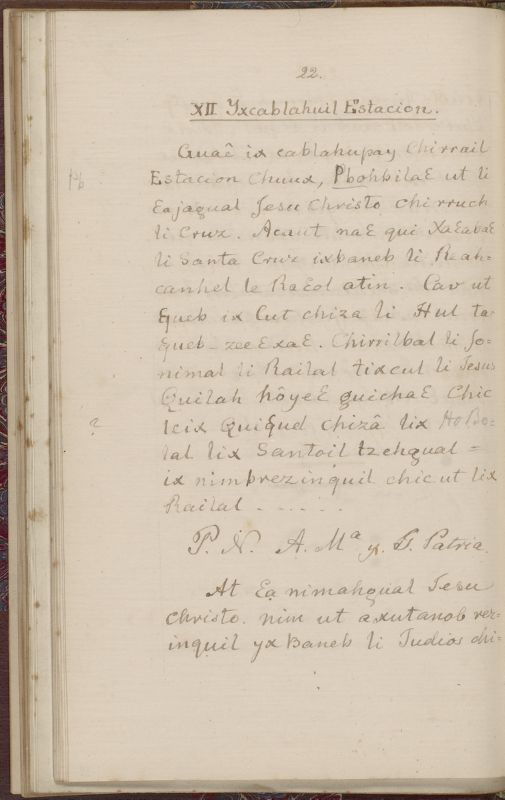 22.
XII Yxcablahuil Estacion.
Guaê ix cablahupay Chirrail
Estacion Chuux, Pbohbilaꜫ ut li
ꜫajagual Jesu Christo chi rruch
li Cruz. Acaut naꜫ qui Xaꜫabaꜫ
li Santa Cruz ixbaneb li Reah=
canhel le Raꜫol atin. Cav ut
queb ix Cut chiza li Hul ta
queb-zeeꜫxaꜫ. Chirrilbal li Jo=
nimal li Railal tixcul li Jesus
Quilah hôyeꜫ guichaꜫ Chic
?
Icix Quiqued chizâ lix HoBo=
lal lix Santoil tzehgual =
ix nimbrezinquil chic ut lix
Railal - - - - -
P. N. A. Mª y G. Patria.
At ꜫa nimahgual Jesu
Christo. nim ut axutanob rez=
inquil yx Baneb li Judios chi=